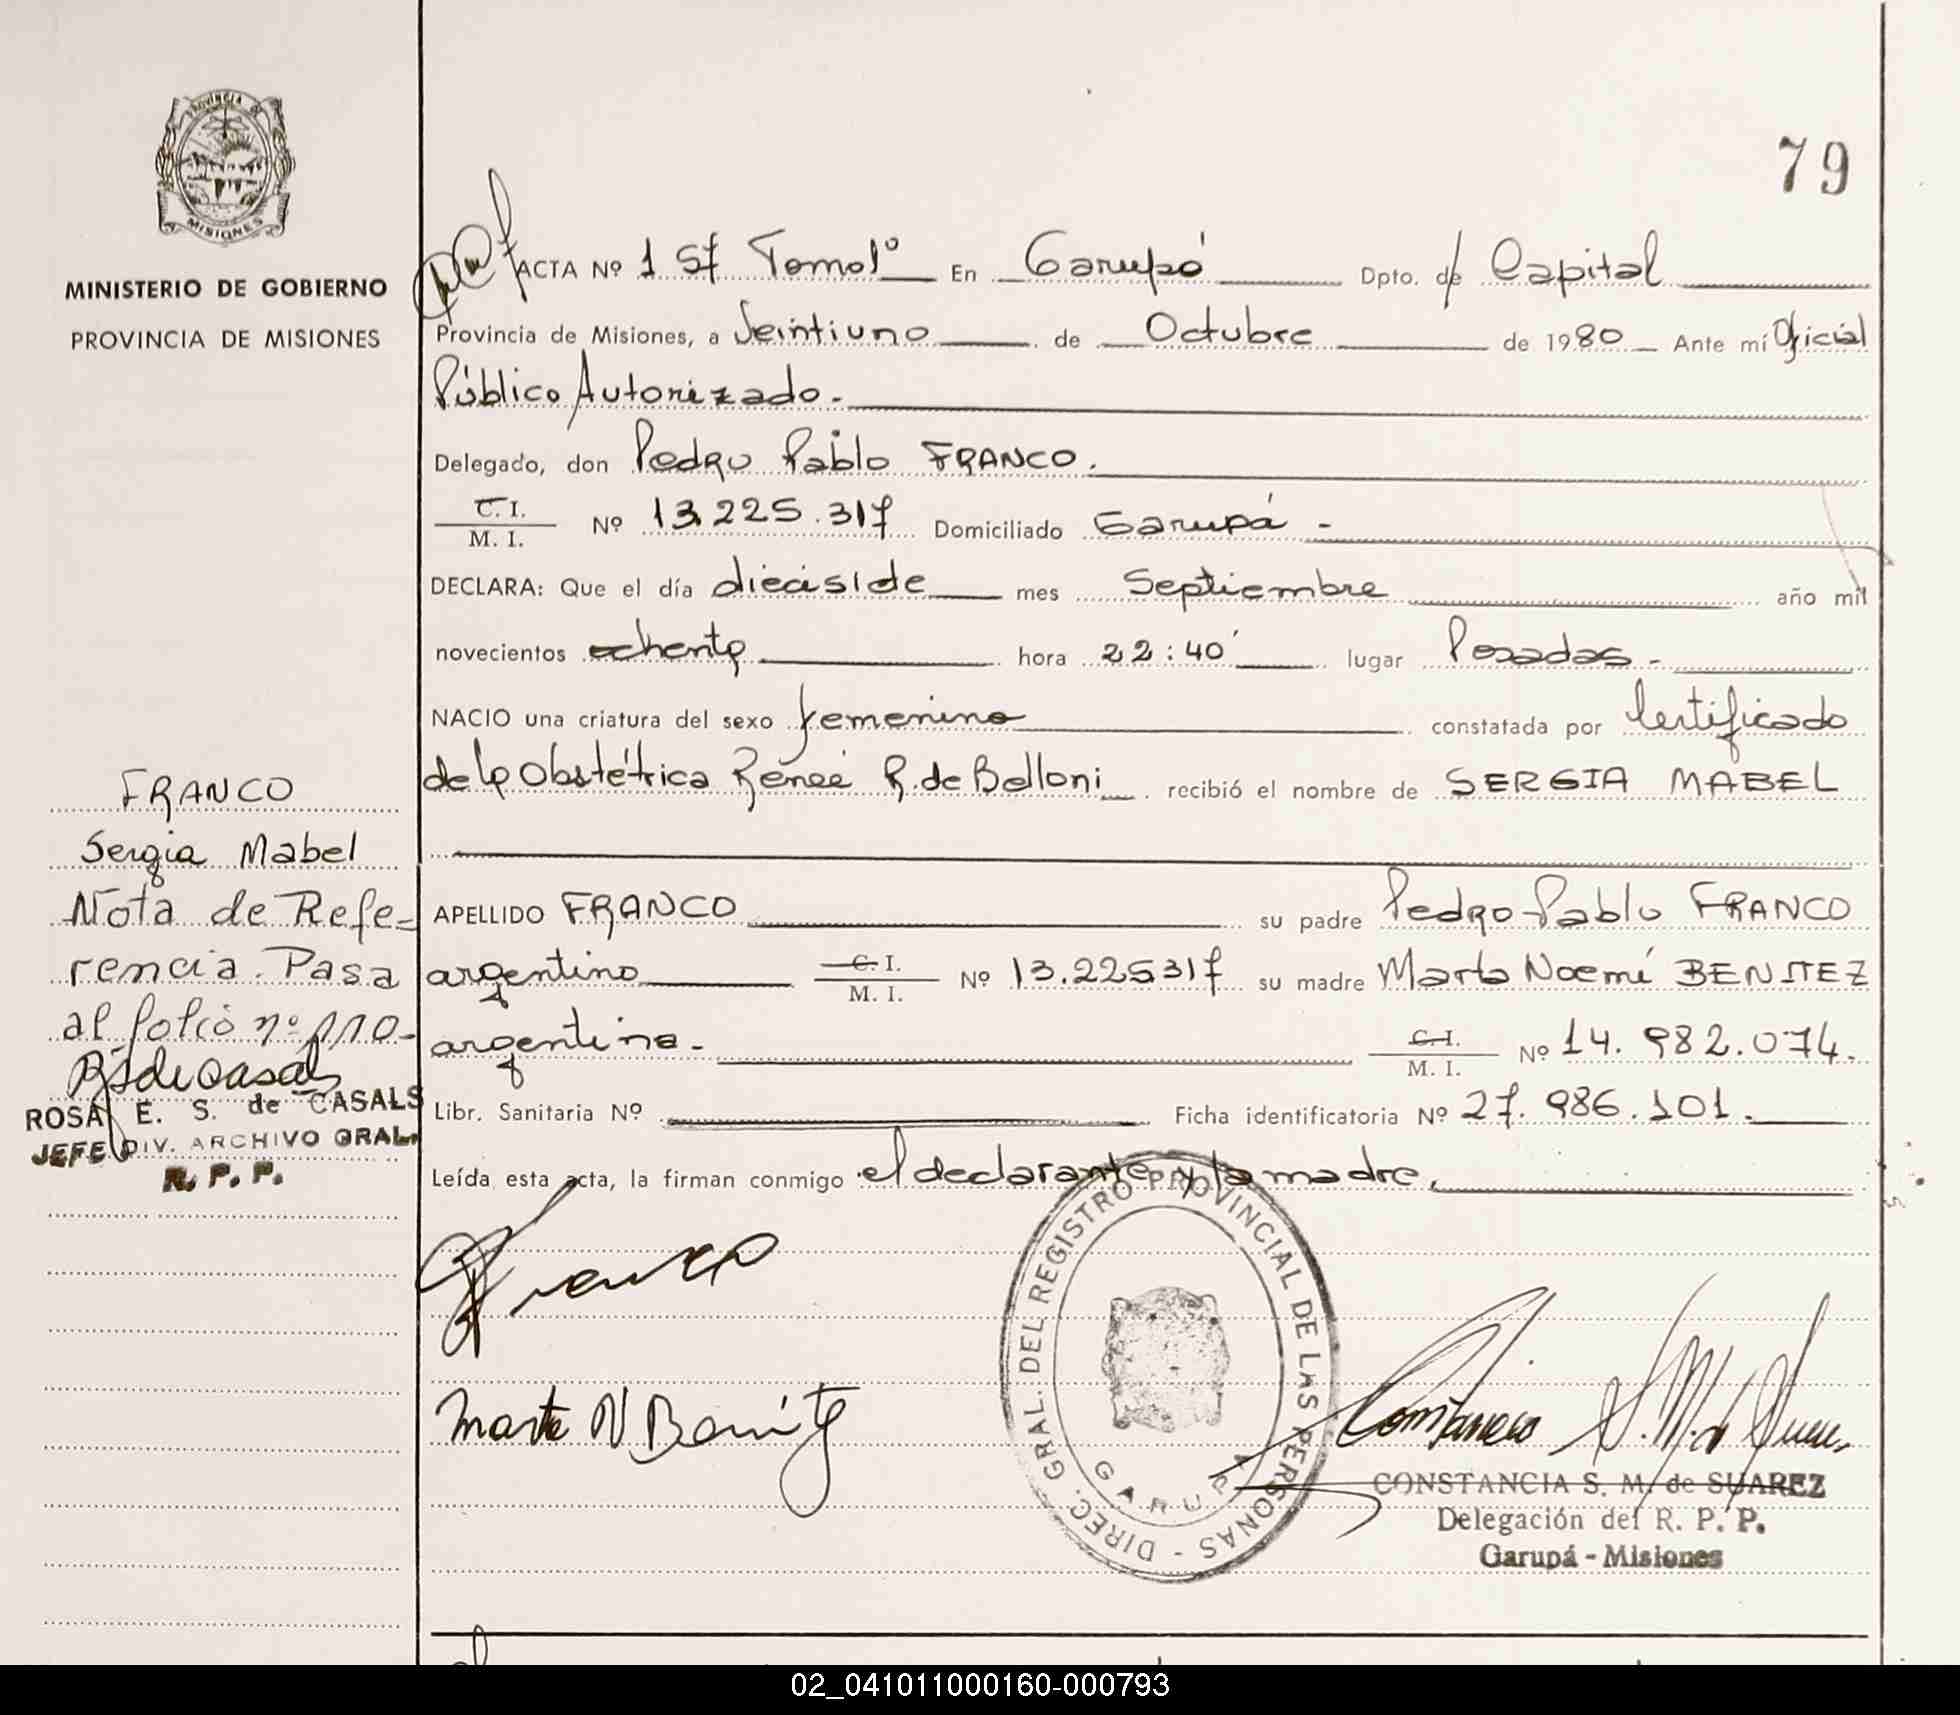 PROVINCIA DE
MISIONES
MINISTERIO DE GOBIERNO
PROVINCIA DE MISIONES
79
ACTA Nº 1 Sf Tomo 1º En Garupá Dpto. de Capital
Provincia de Misiones, a Veintiuno de Octubre de 1980 Ante mí Oficial
Público Autorizado.-
Delegado, don Pedro Pablo FRANCO.
C. I. / M. I. Nº 13.225.317 Domiciliado Garupá -
DECLARA: Que el día dieciside mes Septiembre año mil
novecientos ochenta hora 22:40' lugar Posadas.-
NACIO una criatura del sexo femenino constatada por Certificado
de la Obstétrica Reneé R. de Belloni recibió el nombre de SERGIA MABEL
APELLIDO FRANCO su padre Pedro Pablo FRANCO
argentino C. I. / M. I. Nº 13.225317 su madre Marta Noemí BENITEZ
argentina.- C. I. / M. I. Nº 14.982.074.
Libr. Sanitaria Nº Ficha identificatoria Nº 27.986.101.
Leída esta acta, la firman conmigo el declarante y la madre.
FRANCO
Sergia Mabel
Nota de Refe=
rencia. Pasa
al folio nº 110-
ROSA E. S. de CASALS
JEFE DIV. ARCHIVO GRAL.
R. P. P.
Franco
Marta N Benítez
DIREC. GRAL. DEL REGISTRO PROVINCIAL DE LAS PERSONAS -
GARUPA
CONSTANCIA S. M. de SUAREZ
Delegación del R. P. P.
Garupá - Misiones
02_041011000160-000793